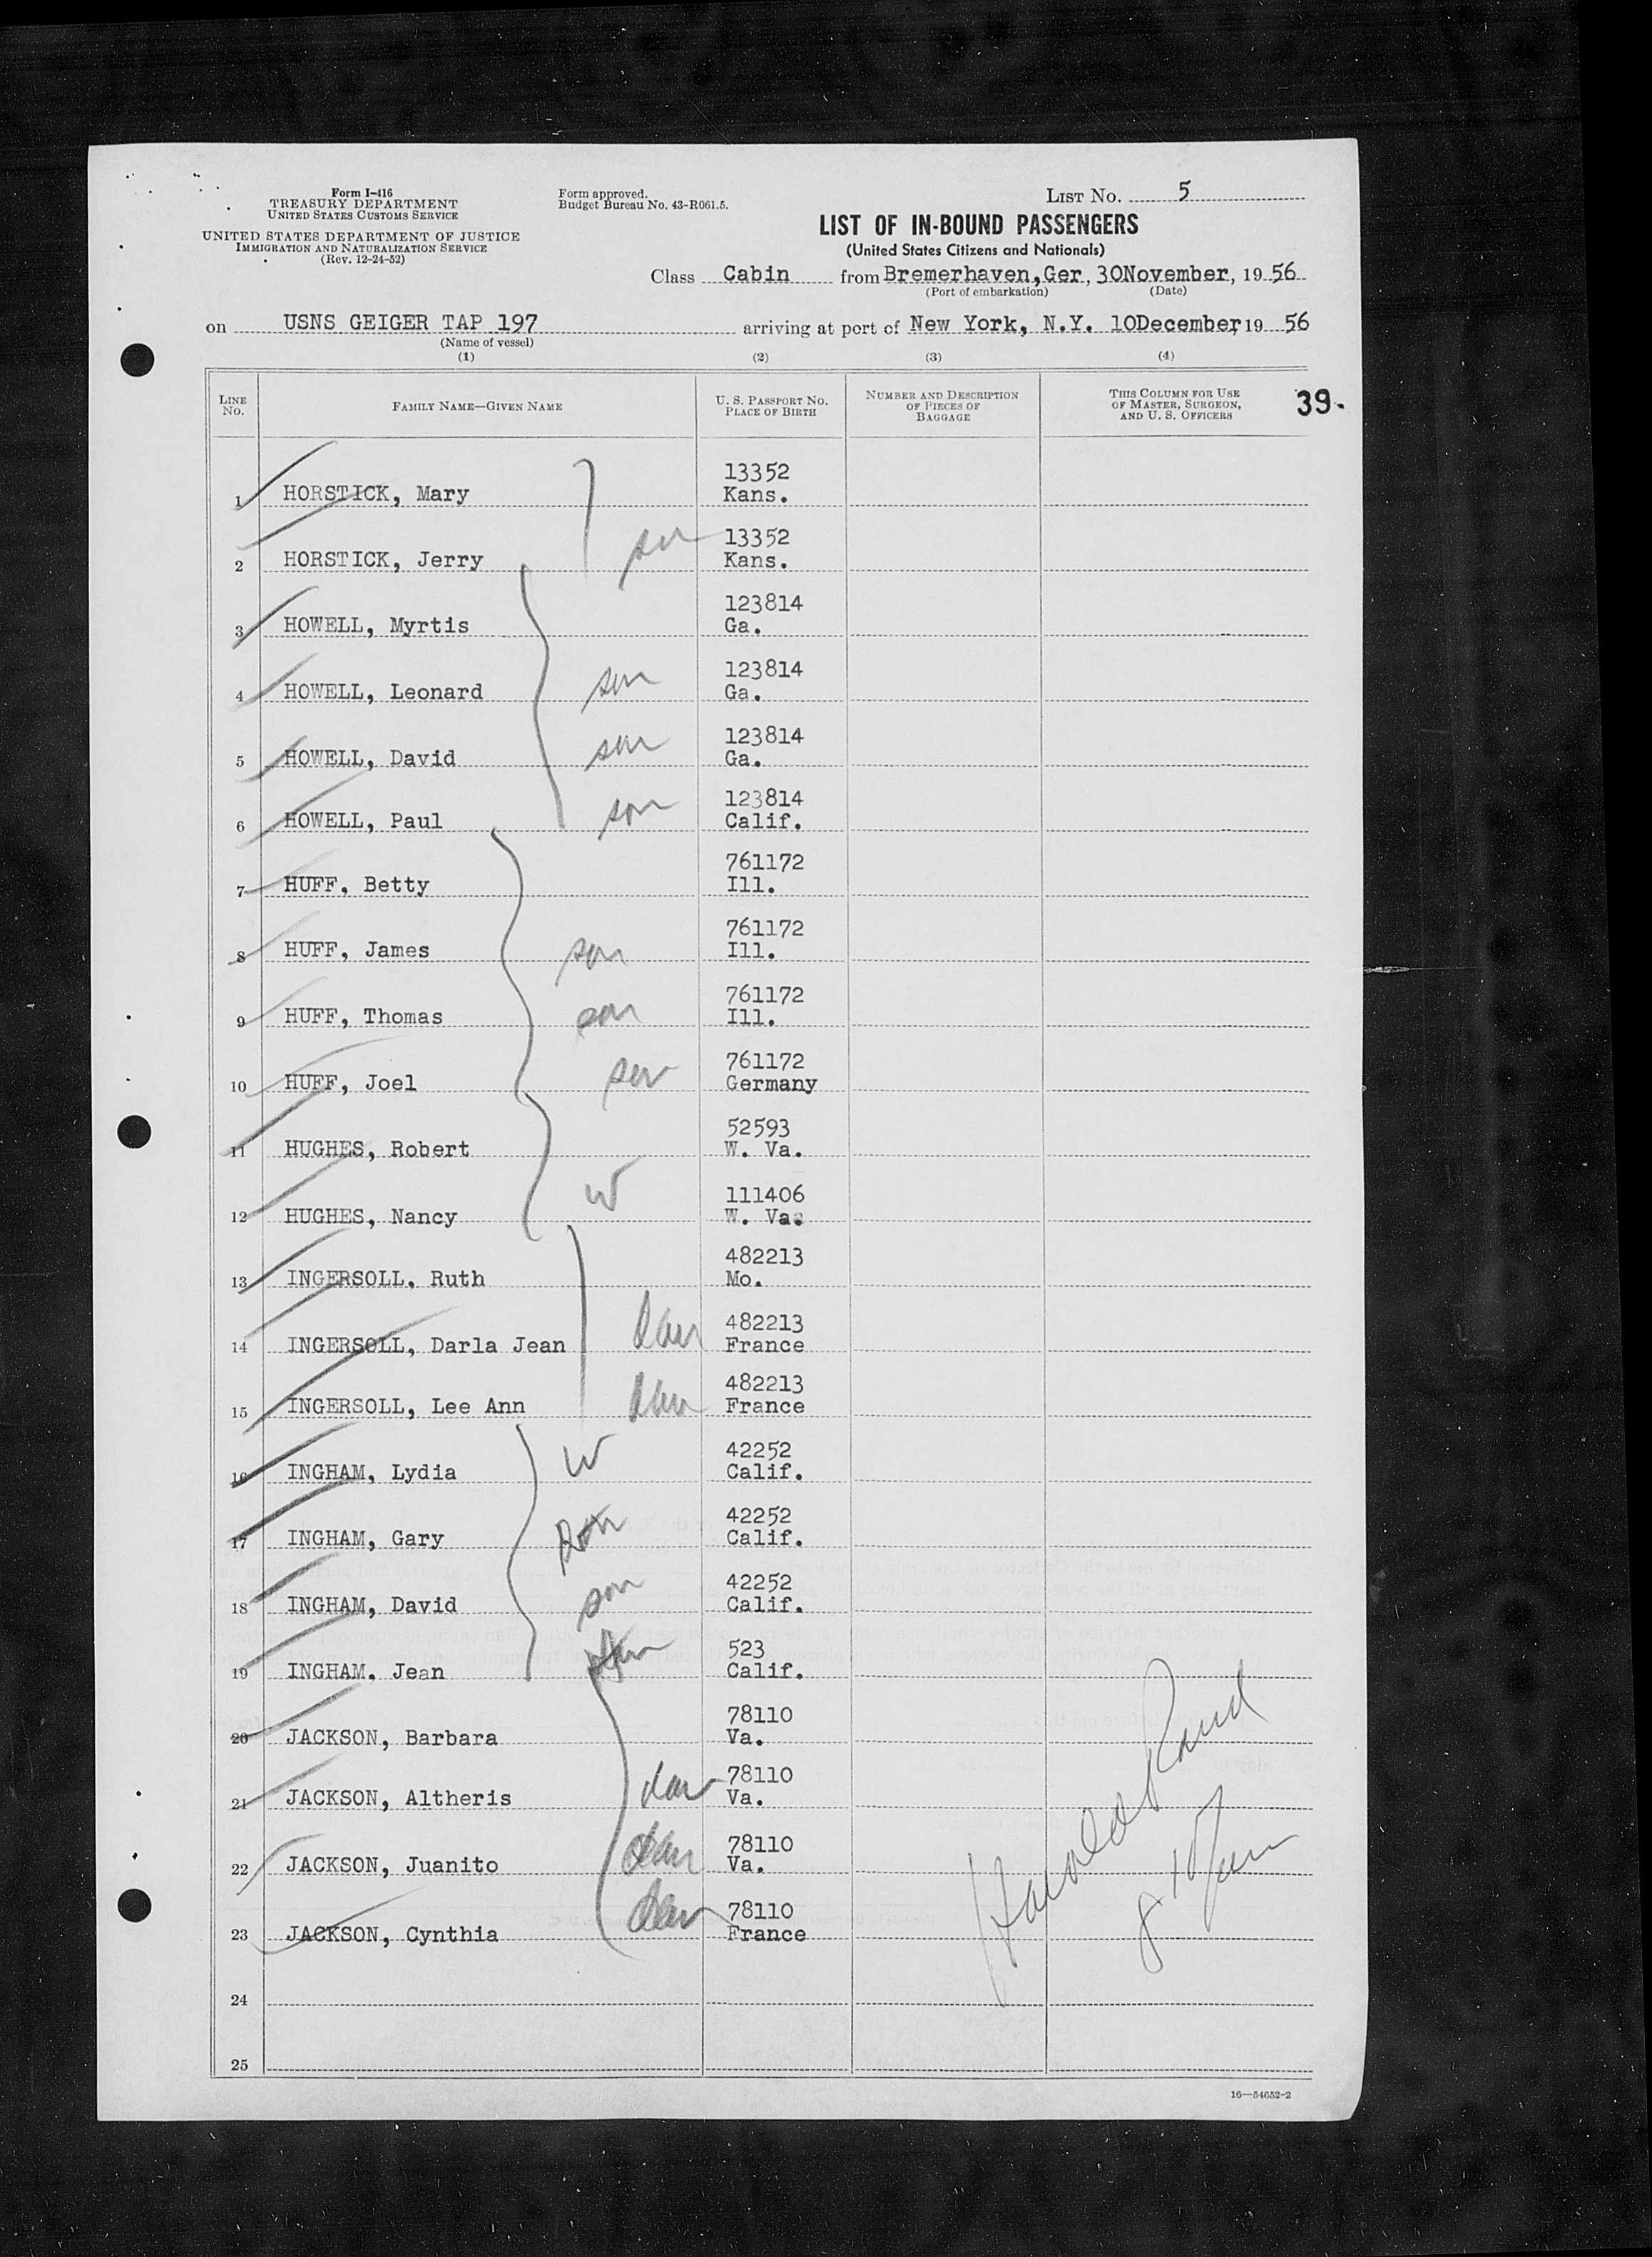 Form I-416
TREASURY DEPARTMENT
UNITED STATES CUSTOMS SERVICE
UNITED STATES DEPARTMENT OF JUSTICE
IMMIGRATION AND NATURALIZATION SERVICE
(Rev. 12-24-52)
Form approved.
Budget Bureau No. 43-R061.5.
LIST No. 5
LIST OF IN-BOUND PASSENGERS
(United States Citizens and Nationals)
Class Cabin from Bremerhaven,Ger, 30November, 1956
(Port of embarkation) (Date)
on USNS GEIGER TAP 197 arriving at port of New York, N.Y. 10December, 19 56
(Name of vessel)
(1) (2) (3) (4)
LINE No. FAMILY NAME—GIVEN NAME U. S. PASSPORT No. PLACE OF BIRTH NUMBER AND DESCRIPTION OF PIECES OF BAGGAGE THIS COLUMN FOR USE OF MASTER, SURGEON, AND U. S. OFFICERS 39.
13352
1 HORSTICK, Mary Kans.
13352
2 HORSTICK, Jerry son Kans.
123814
3 HOWELL, Myrtis Ga.
123814
4 HOWELL, Leonard son Ga.
123814
5 HOWELL, David son Ga.
123814
6 HOWELL, Paul son Calif.
761172
7 HUFF, Betty Ill.
761172
8 HUFF, James son Ill.
761172
9 HUFF, Thomas son Ill.
761172
10 HUFF, Joel son Germany
52593
11 HUGHES, Robert W. Va.
111406
12 HUGHES, Nancy W W. Va.
482213
13 INGERSOLL, Ruth Mo.
482213
14 INGERSOLL, Darla Jean dau France
482213
15 INGERSOLL, Lee Ann dau France
42252
16 INGHAM, Lydia W Calif.
42252
17 INGHAM, Gary son Calif.
42252
18 INGHAM, David son Calif.
523
19 INGHAM, Jean Calif.
78110
20 JACKSON, Barbara Va.
78110
21 JACKSON, Altheris dau Va.
78110
22 JACKSON, Juanito dau Va.
78110
23 JACKSON, Cynthia dau France
Harold Rand
24
25
16—54652-2